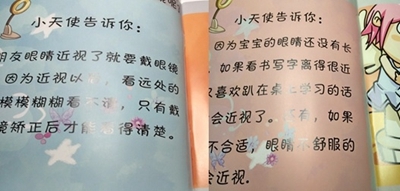 小天使告诉你：
朋友眼睛近视了就要戴眼镜
因为近视以，看远处的
模模糊糊看不清，只有戴
镜矫正后才能看得清楚。
小天使告诉你：
因为宝宝的眼睛还没有长
如果看书写字离得很近
又喜欢趴在桌上学习的话
会近视了。还有，如果
不合适，眼睛不舒服的
会近视。